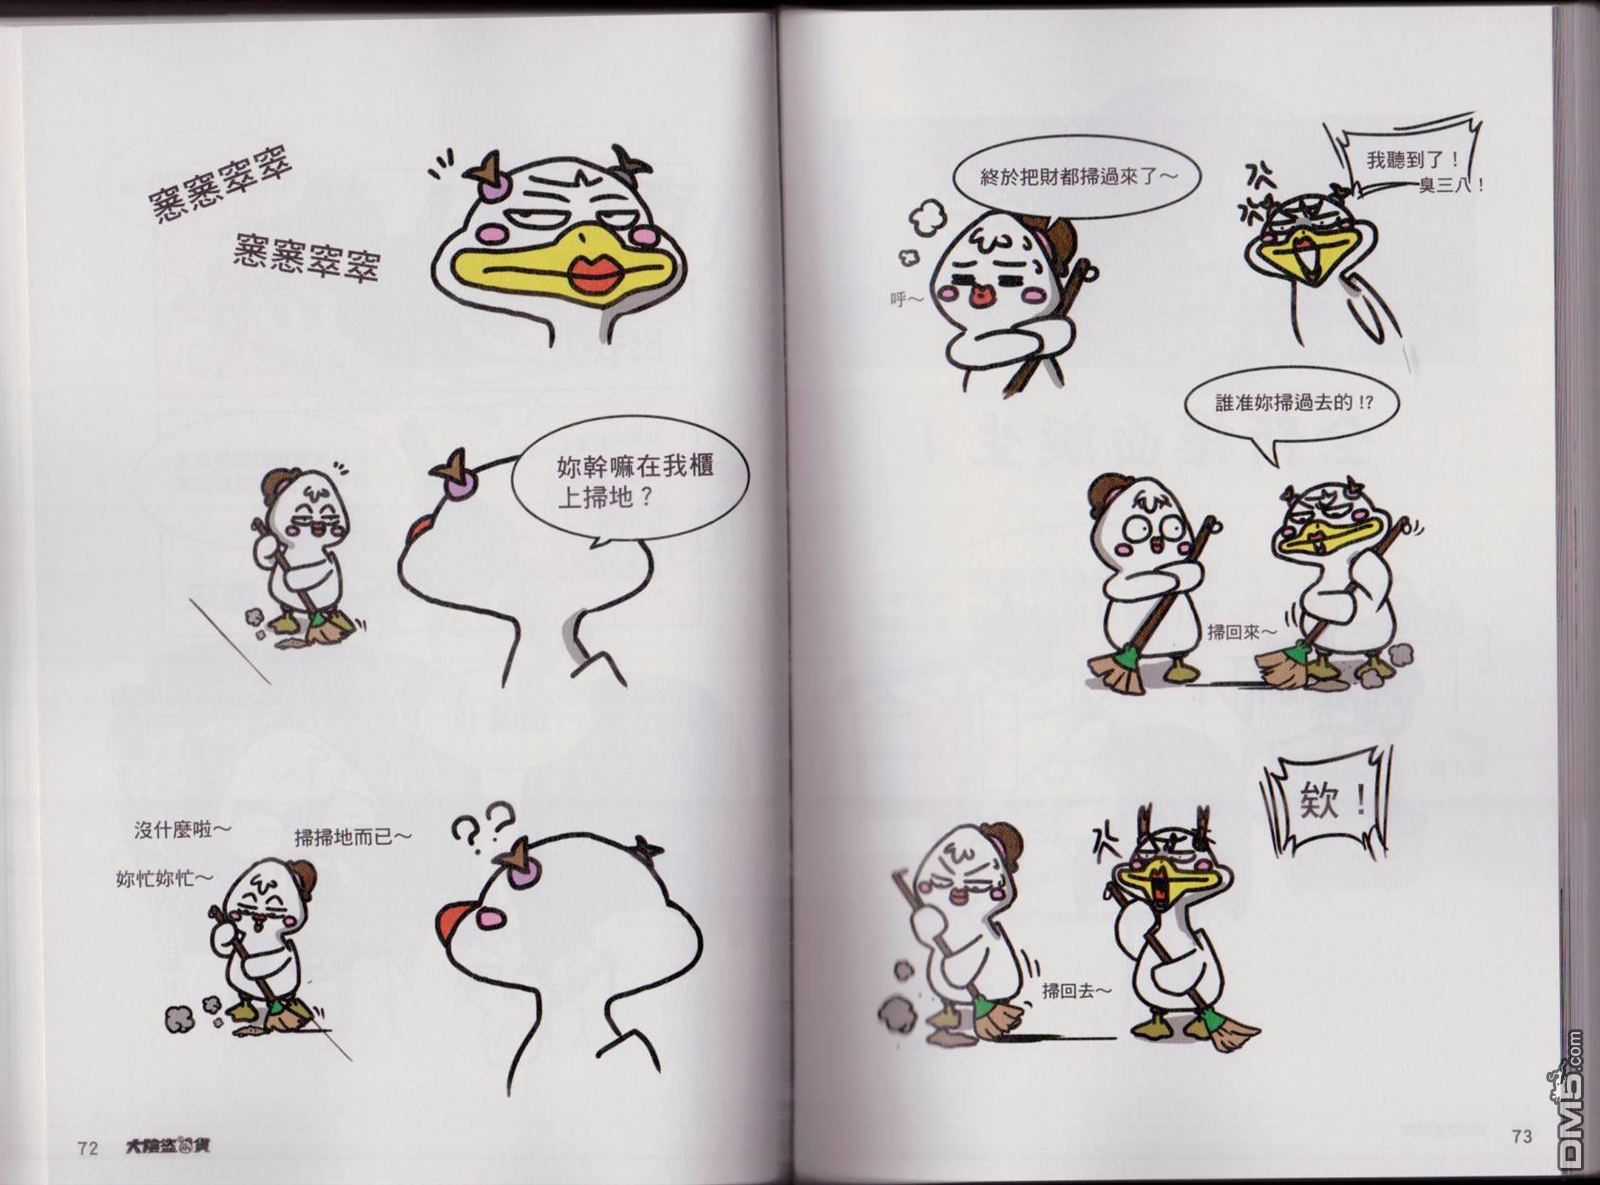 窸窸窣窣
窸窸窣窣
妳幹嘛在我櫃
上掃地？
沒什麼啦～
掃掃地而已～
妳忙妳忙～
72
終於把財都掃過來了～
呼～
我聽到了！
臭三八！
誰准妳掃過去的!?
掃回來～
欸！
掃回去～
73
DM5.com